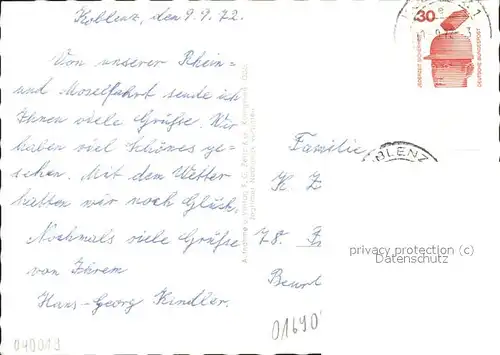 Koblenz, den 9.9.72.
Von unserer Rhein-
und Moselfahrt sende ich
Ihnen viele Grüße. Wir
haben viel Schönes ge-
sehen. Mit dem Wetter
hatten wir noch Glück.
Nochmals viele Grüße
von Ihrem
Hans-Georg Kindler.
30
JEDERZEIT SICHERHEIT
DEUTSCHE BUNDESPOST
OBLENZ
Familie
K Z
78.
privacy protection (c)
Datenschutz
01690
040019